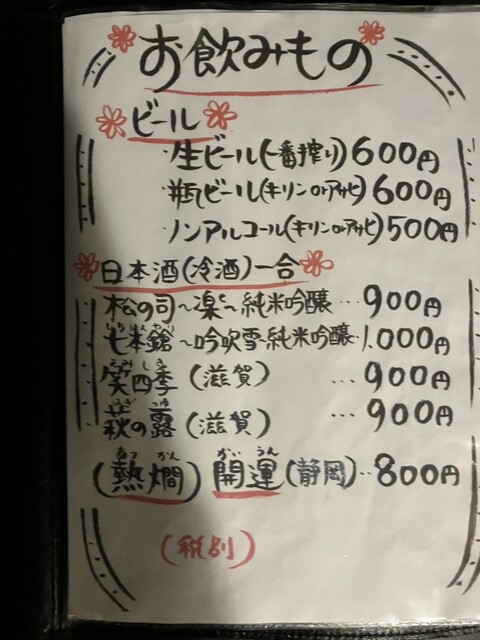 お飲みもの
ビール
・生ビール(一番搾り)600円
・瓶ビール(キリンorアサヒ)600円
・ノンアルコール(キリンorアサヒ)500円
日本酒(冷酒)一合
松の司~楽~純米吟醸…900円
七本鎗~吟吹雪~純米吟醸・1,000円
笑四季(滋賀)…900円
萩の露(滋賀)…900円
(熱燗)開運(静岡)‥800円
(税別)